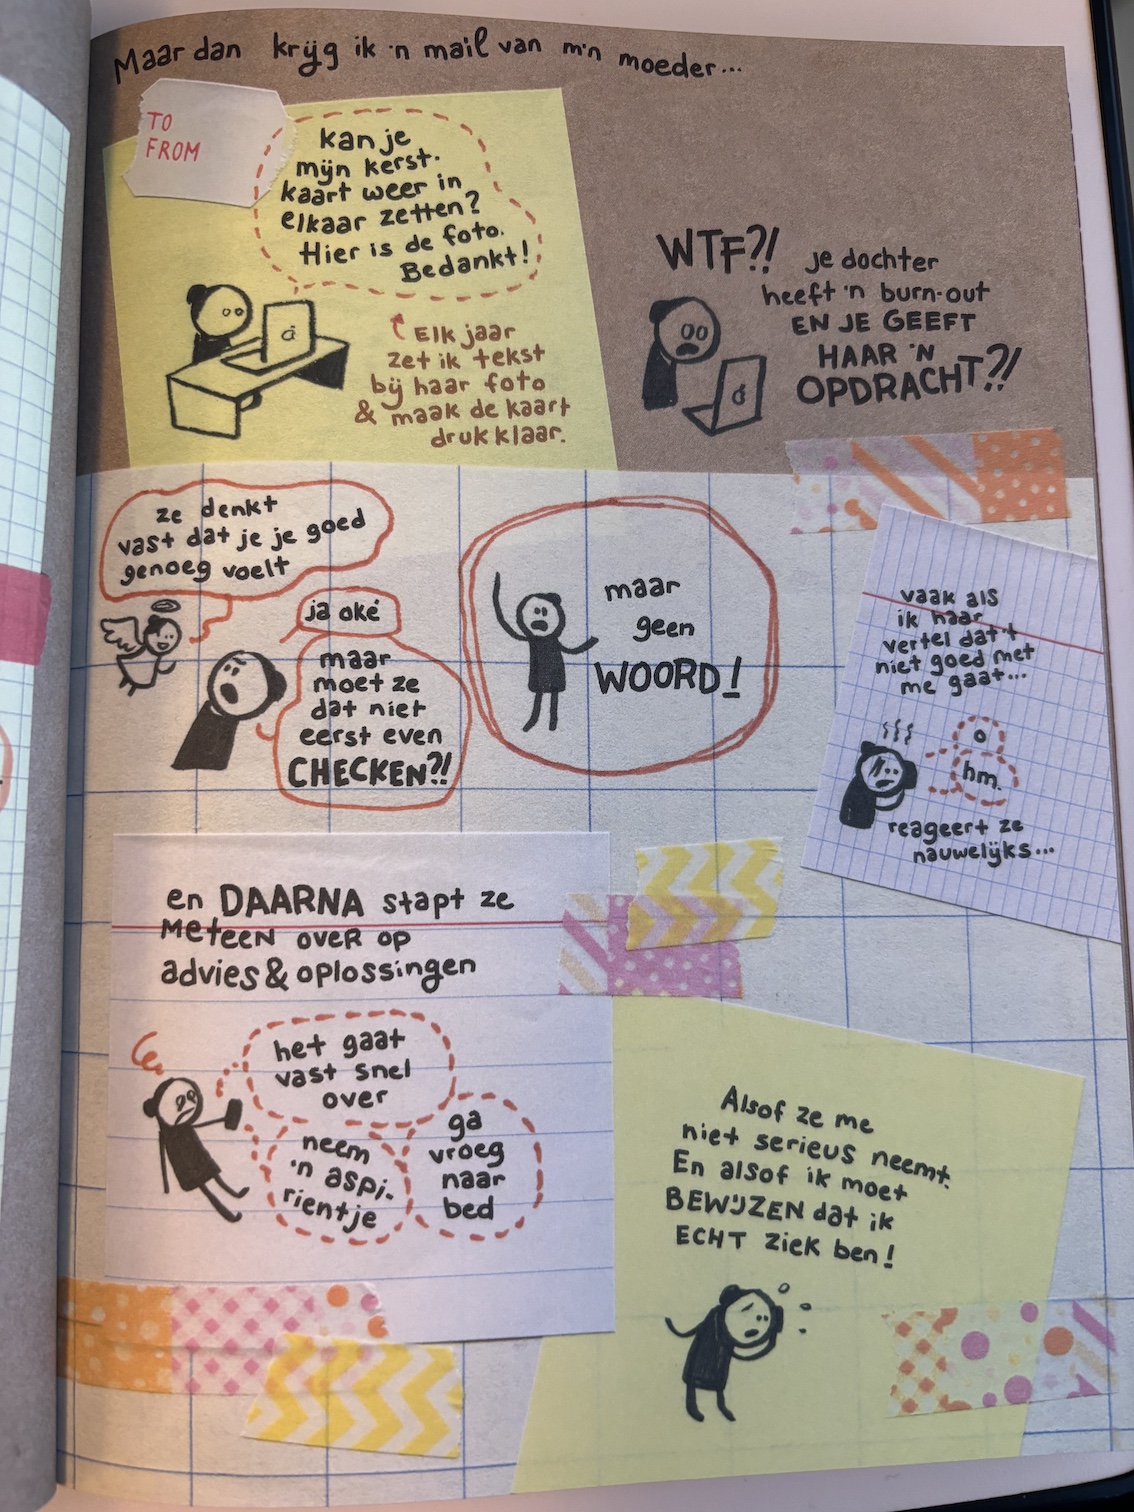 Maar dan krijg ik 'n mail van m'n moeder...
TO
FROM
kan je
mijn kerst-
kaart weer in
elkaar zetten?
Hier is de foto.
Bedankt!
Elk jaar
zet ik tekst
bij haar foto
& maak de kaart
drukklaar.
WTF?! je dochter
heeft 'n burn-out
EN JE GEEFT
HAAR 'N
OPDRACHT?!
ze denkt
vast dat je je goed
genoeg voelt
ja oké
maar
moet ze
dat niet
eerst even
CHECKEN?!
maar
geen
WOORD!
vaak als
ik haar
vertel dat 't
niet goed met
me gaat...
o
hm.
reageert ze
nauwelijks...
en DAARNA stapt ze
METEEN OVER OP
advies & oplossingen
het gaat
vast snel
over
neem
'n aspi-
rientje
ga
vroeg
naar
bed
Alsof ze me
niet serieus neemt.
En alsof ik moet
BEWIJZEN dat ik
ECHT ziek ben!